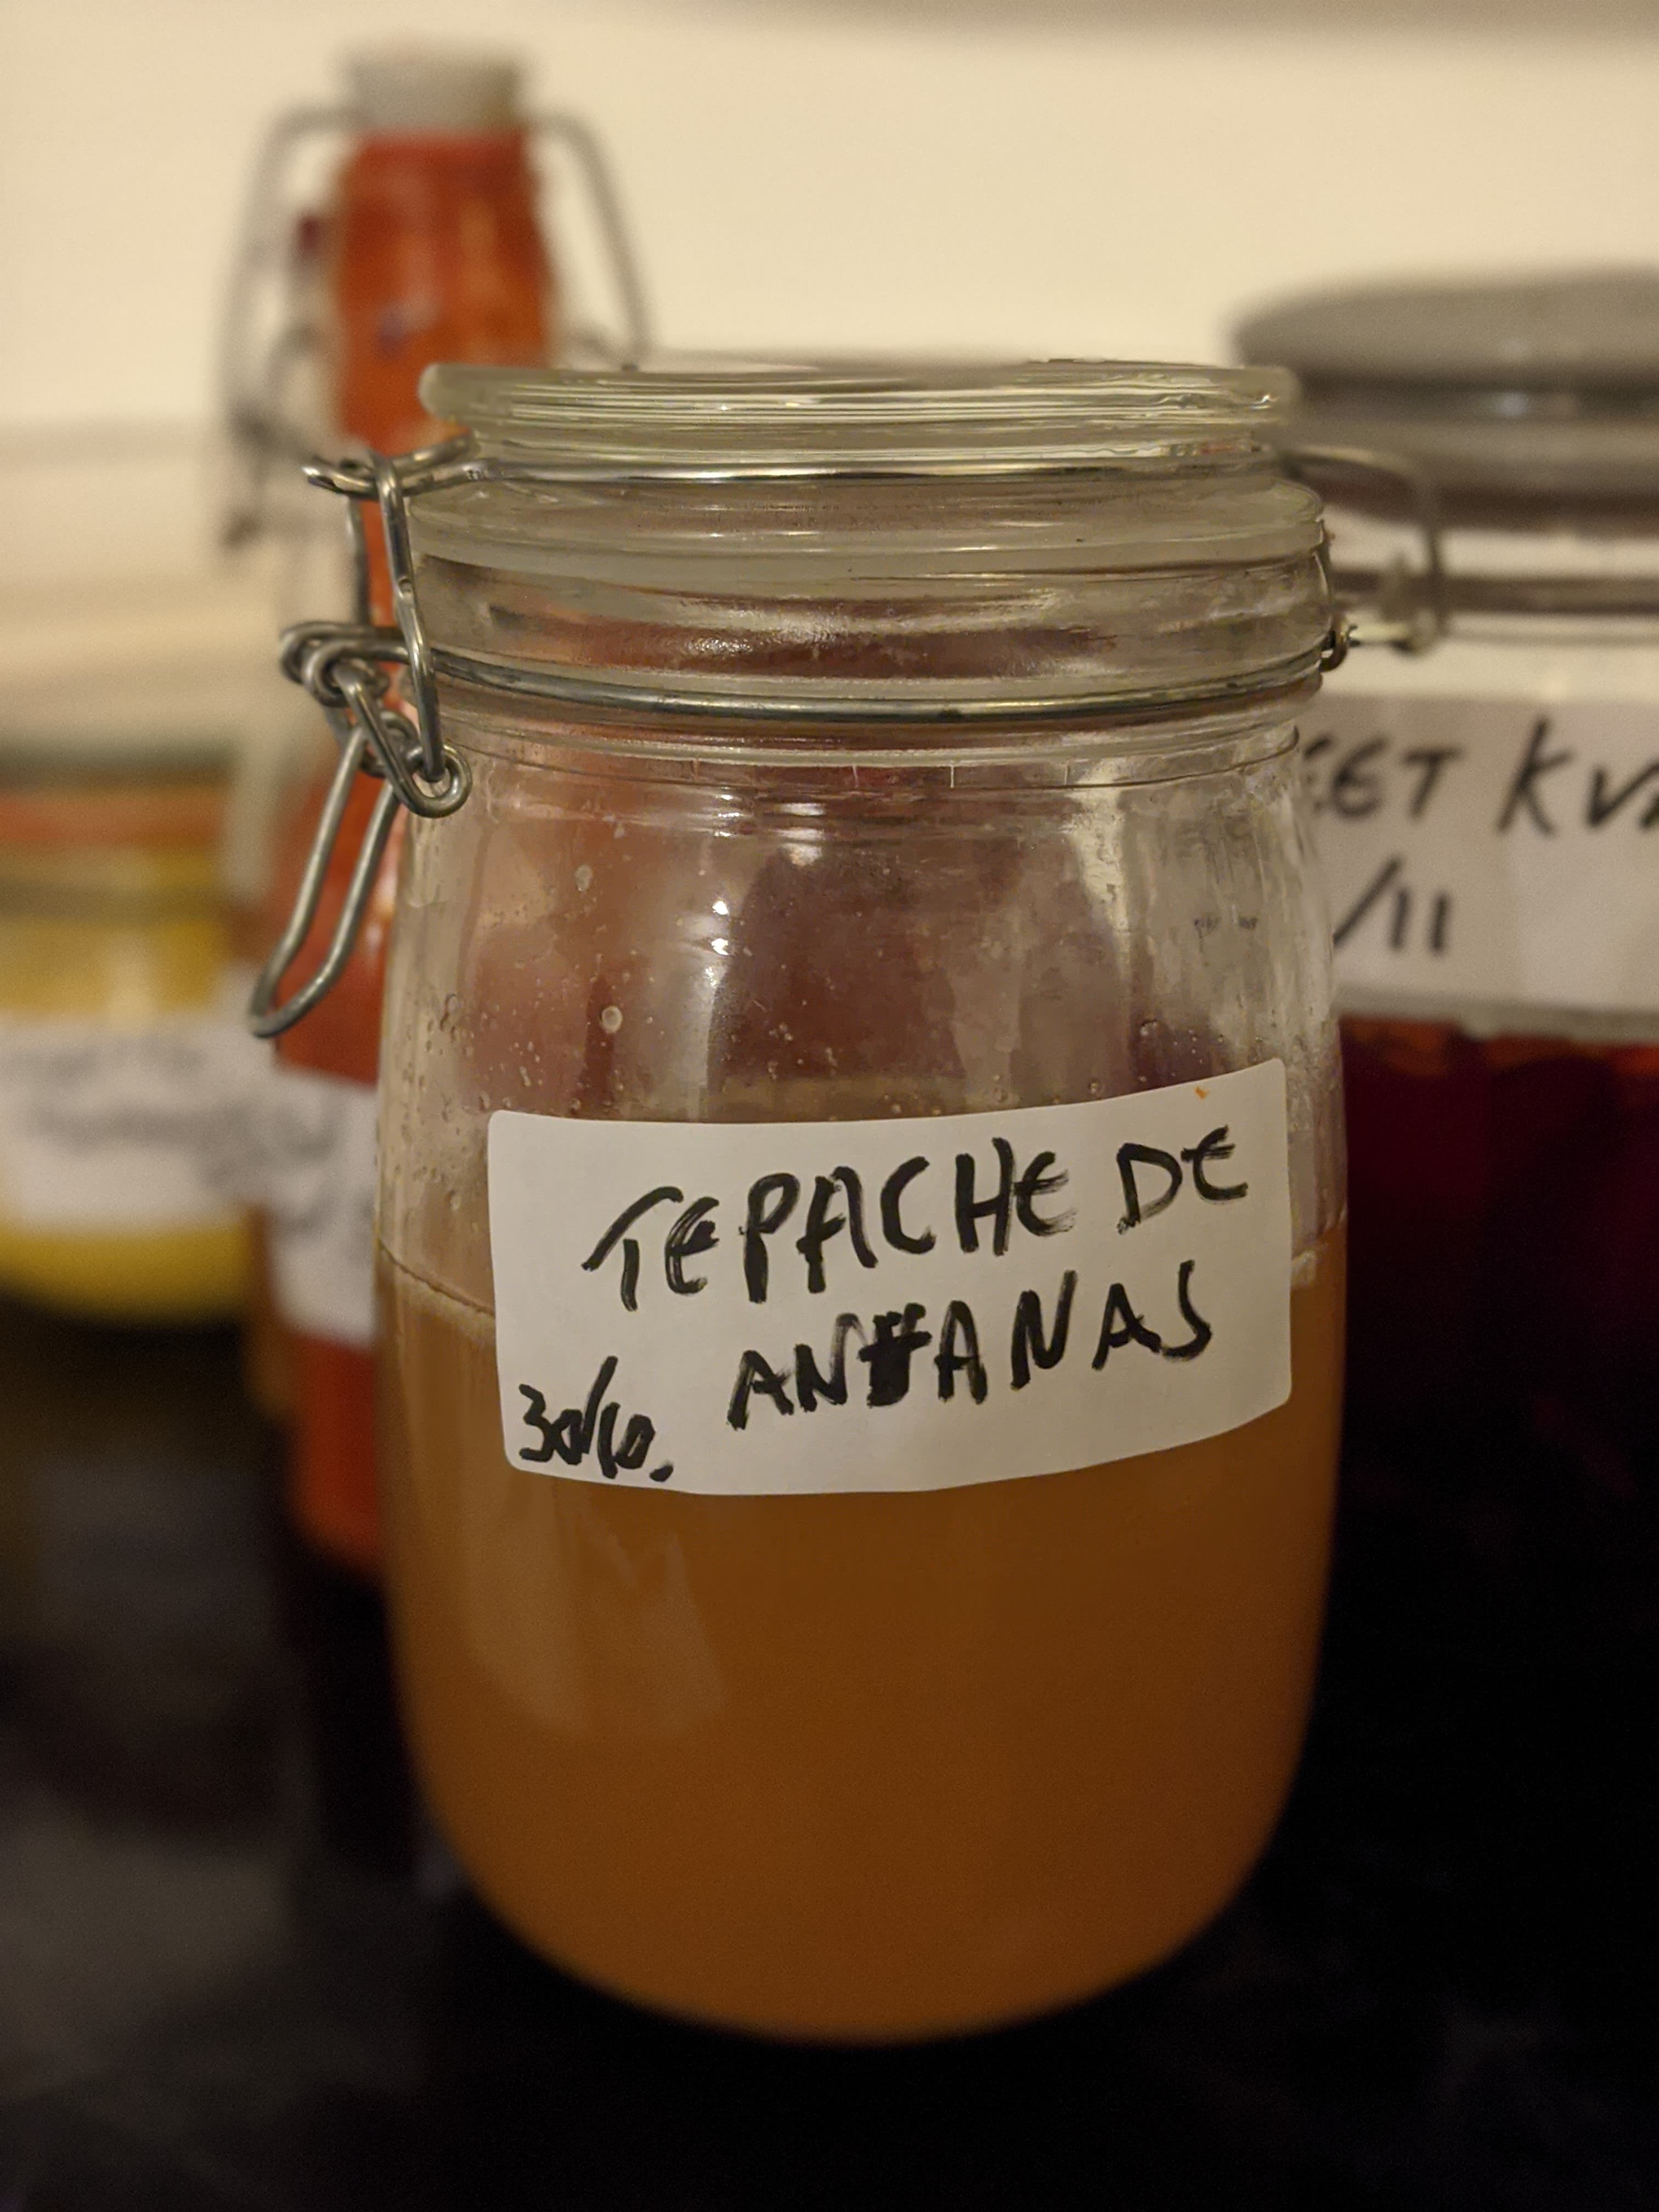 TEPACHE DE
ANANAS
30/10.
EET KVA
/11